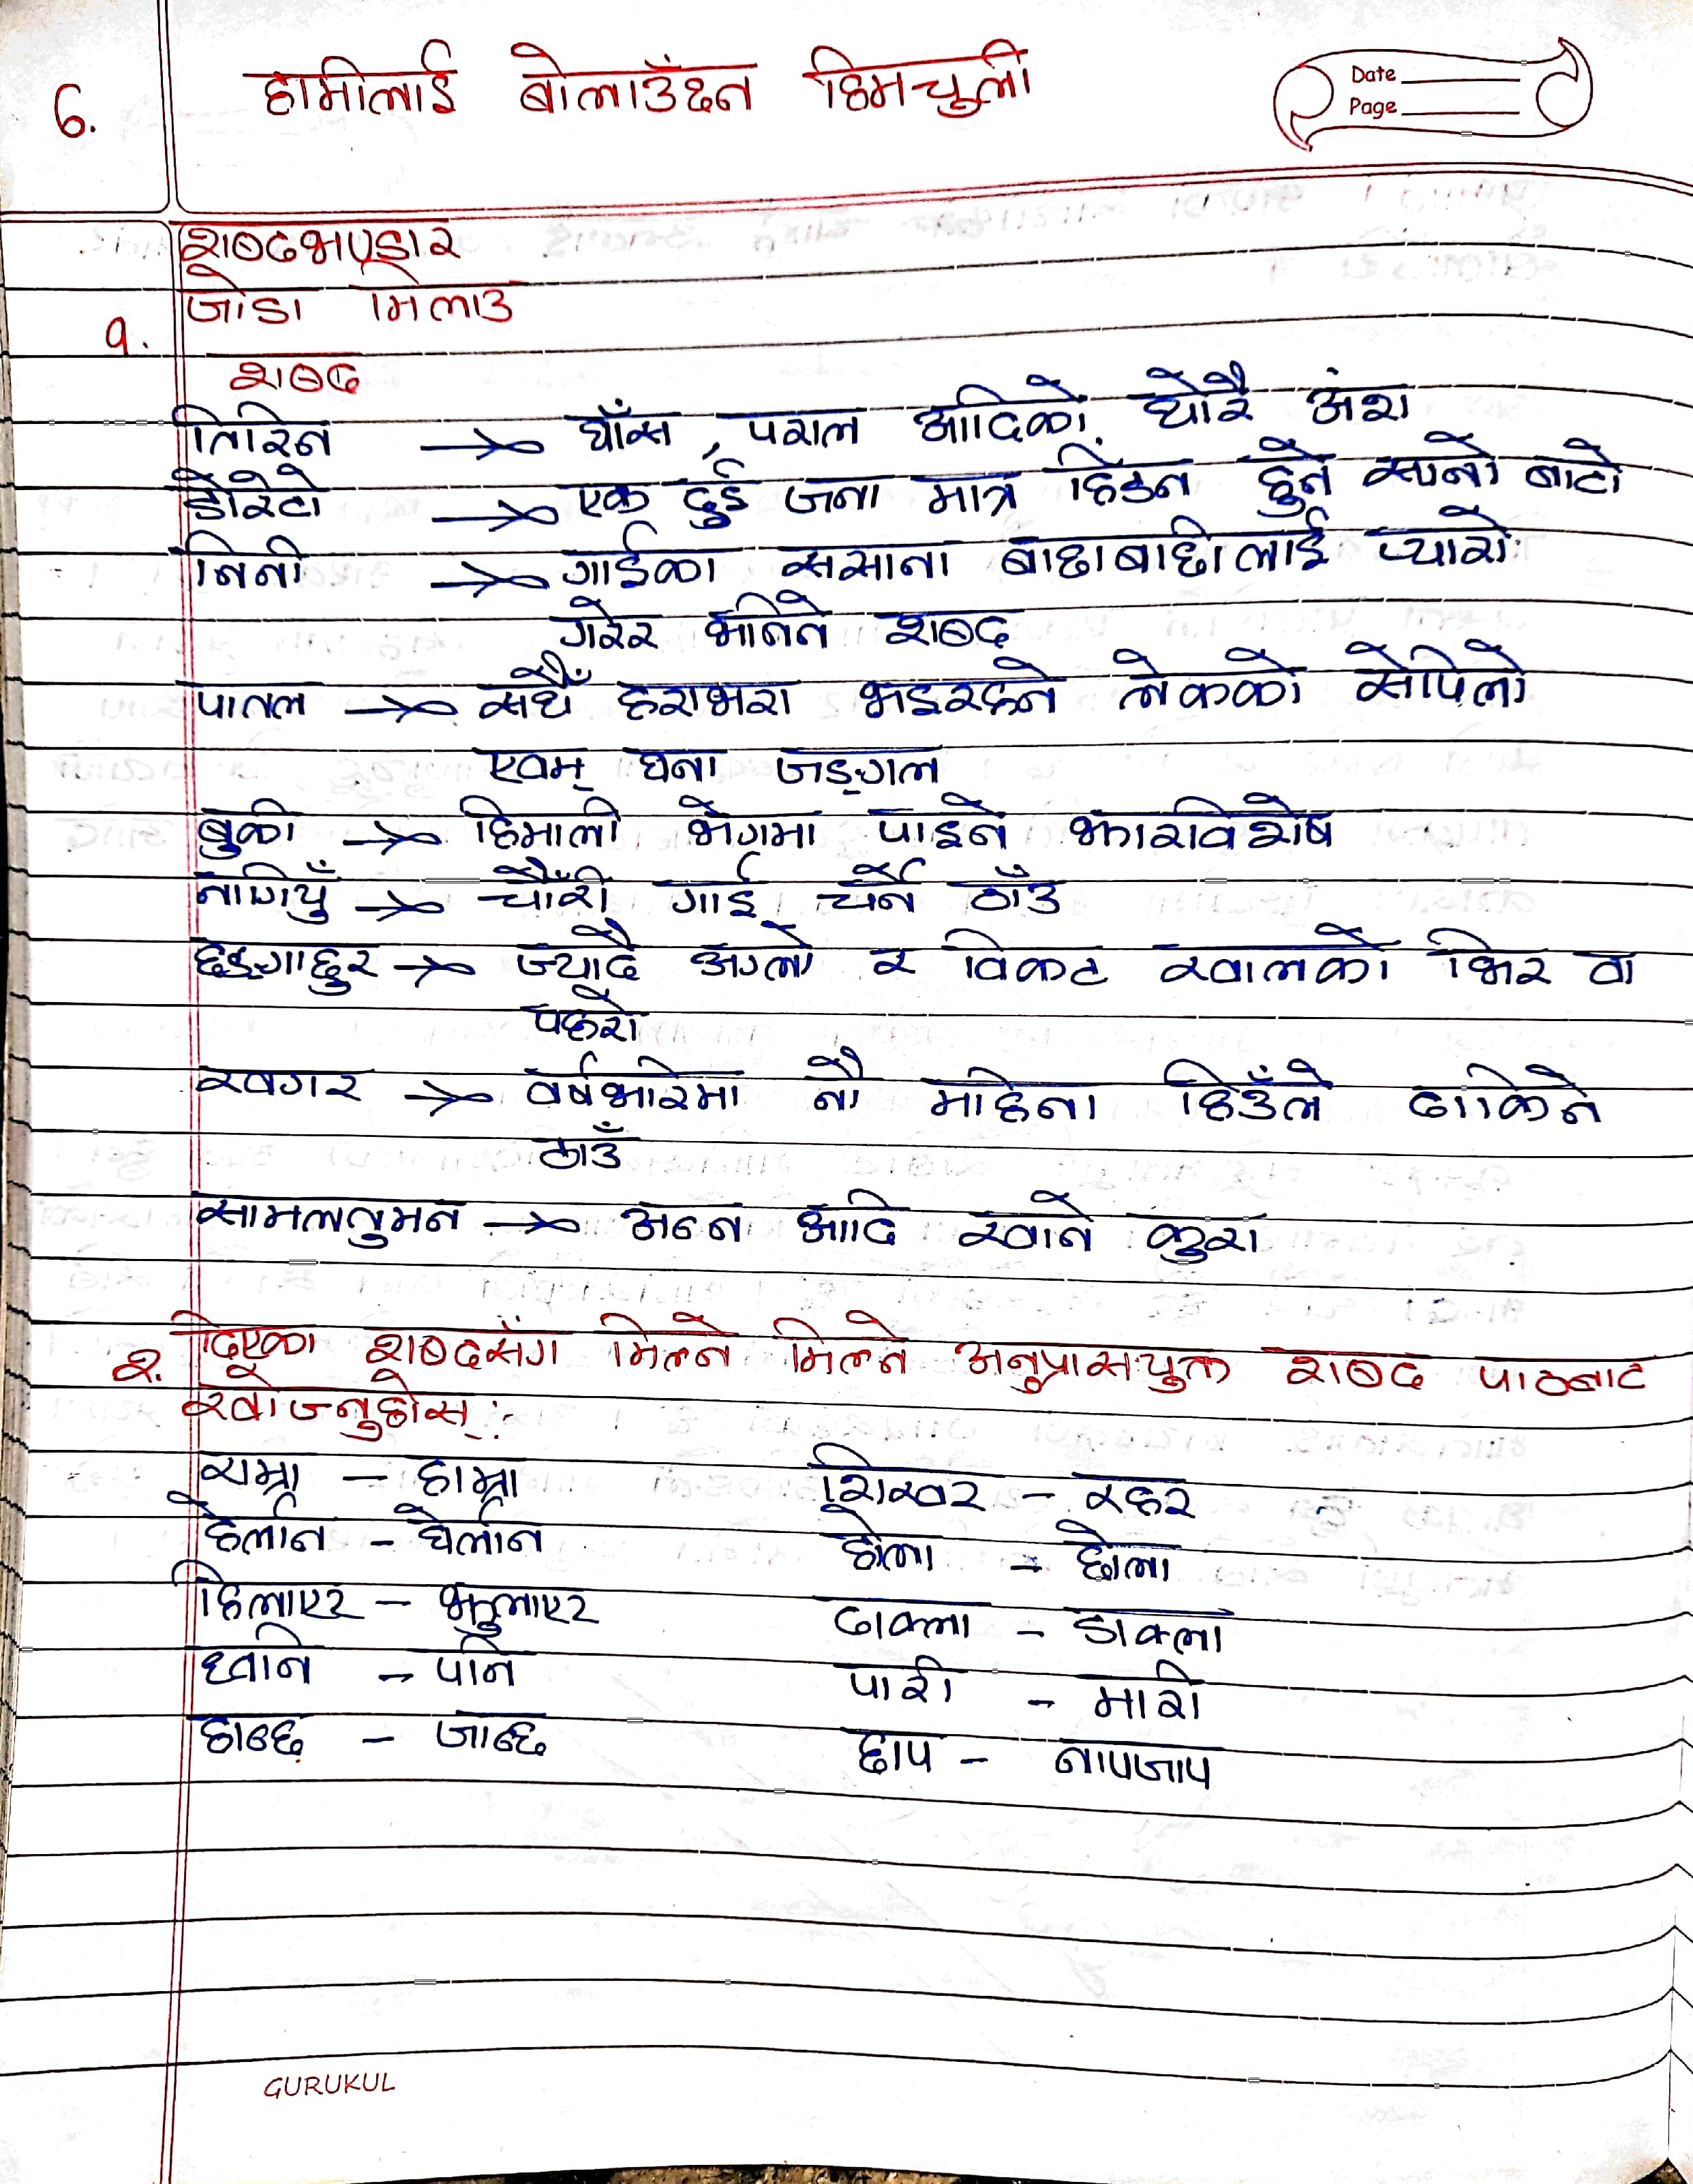 6.
हामीलाई बोलाउँछन हिमचुली
Date
Page
शब्दभण्डार
१. जोडा मिलाउ
शब्द
तिरिन → घाँस, पराल आदिको थोरै अंश
डोरेटो → एक दुई जना मात्र हिँडन हुने सानो बाटो
निनी → गाईका ससाना बाछाबाछीलाई प्यारो
गरेर भनिने शब्द
पातल → सधैँ हराभरा भइरहने लेकको सेपिलो
एवम् घना जङ्गल
बुकी → हिमाली भेगमा पाइने झारविशेष
नागियुँ → चौँरी गाई चर्ने ठाँउ
छङ्गाछुर → ज्यादै अग्लो र विकट खालको भिर वा
पहरो
खगर → वर्षभरिमा नौ महिना हिउँले ढाकिने
ठाउँ
सामलतुमन → अन्न आदि खाने कुरा
२. दिएका शब्दसँग मिल्ने मिल्ने अनुप्रासयुक्त शब्द पाठबाट
खोज्नुहोस् :-
राम्रा - हाम्रा शिखर - रहर
हेर्लान - घेर्लान होला - छोला
हिलाएर - झुलाएर ढाक्ला - डाक्ला
ध्वनि - पनि पारी - मारी
हान्छ - जान्छ छाप - नापजाप
GURUKUL